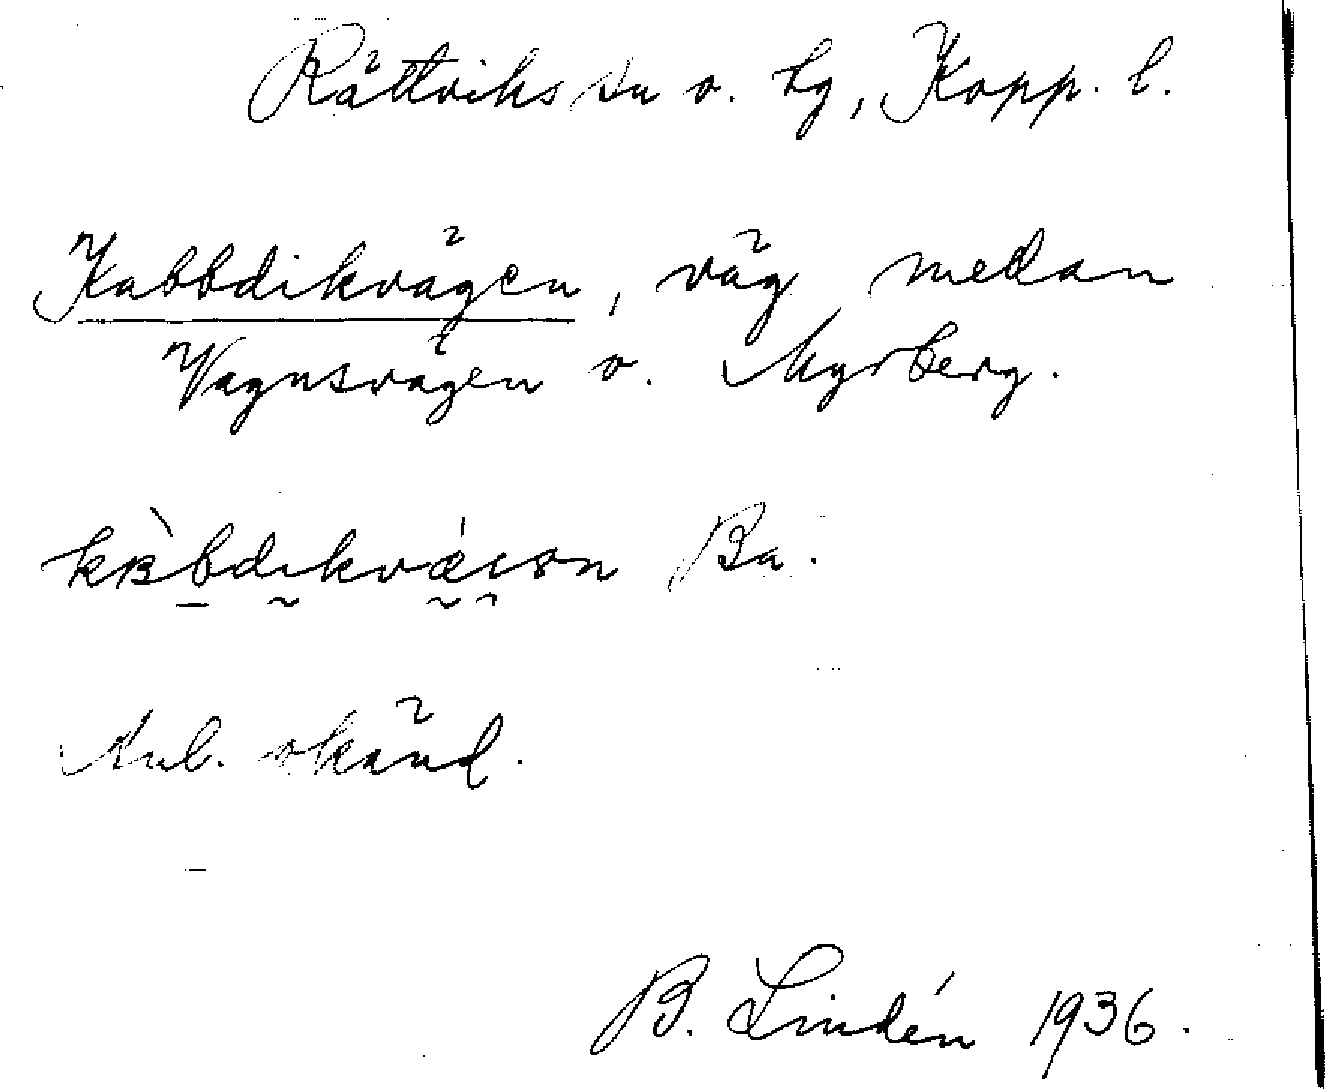 Rättviks sn o. tg, Kopp. l.
Kabbdikvägen, väg medan
Vagnsvägen o. Myrberg.
Ba.
Anl. okänd.
B. Lindén 1936.